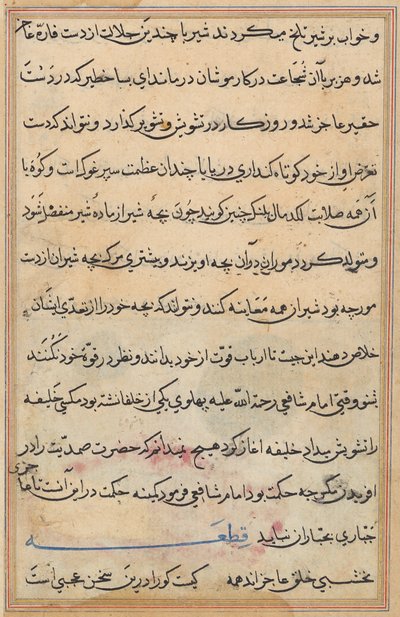 و خواب بر شیر تلخ میکردند شیر با چندین جلالت از دست فاره عاجز
شد و هزبر با آن شجاعت در کار موشان درماند ای بسا خطیر که در دست
حقیر عاجز شد و روزگار در تشویش و تشویر گذارد و نتواند که دست
تعرض او از خود کوتاه کند اری دریا با چندان عظمت سپر غوک است و کوه با
آن همه صلابت لکدمال پلنک چنین کویند چون بچه شیر از ماده شیر منفصل شود
و متولد کردد موران دران بچه اویزند و بیشتری مرک بچه شیران از دست
مورچه بود شیر از همه معاینه کند و نتواند که بچه خود را از تعدی ایشان
خلاص دهد این جیت تا ارباب قوت از خود بدانند و نظر در قوة خود نکنند
شنو وقتی امام شافعی رحمة الله علیه پهلوی یکی از خلفا نشسته بود مکسی خلیفه
را تشویش میداد خلیفه اغاز کرد هیچ نمیدانم که حضرت صمدیت را در
افریدن مکس چه حکمت بود امام شافعی فرمود کمینه حکمت در این آنست تا عاجزی
جباری بجباران نماید قطعه
نخشبی خلق عاجزاند همه کیست کو را درین سخن عجبی است